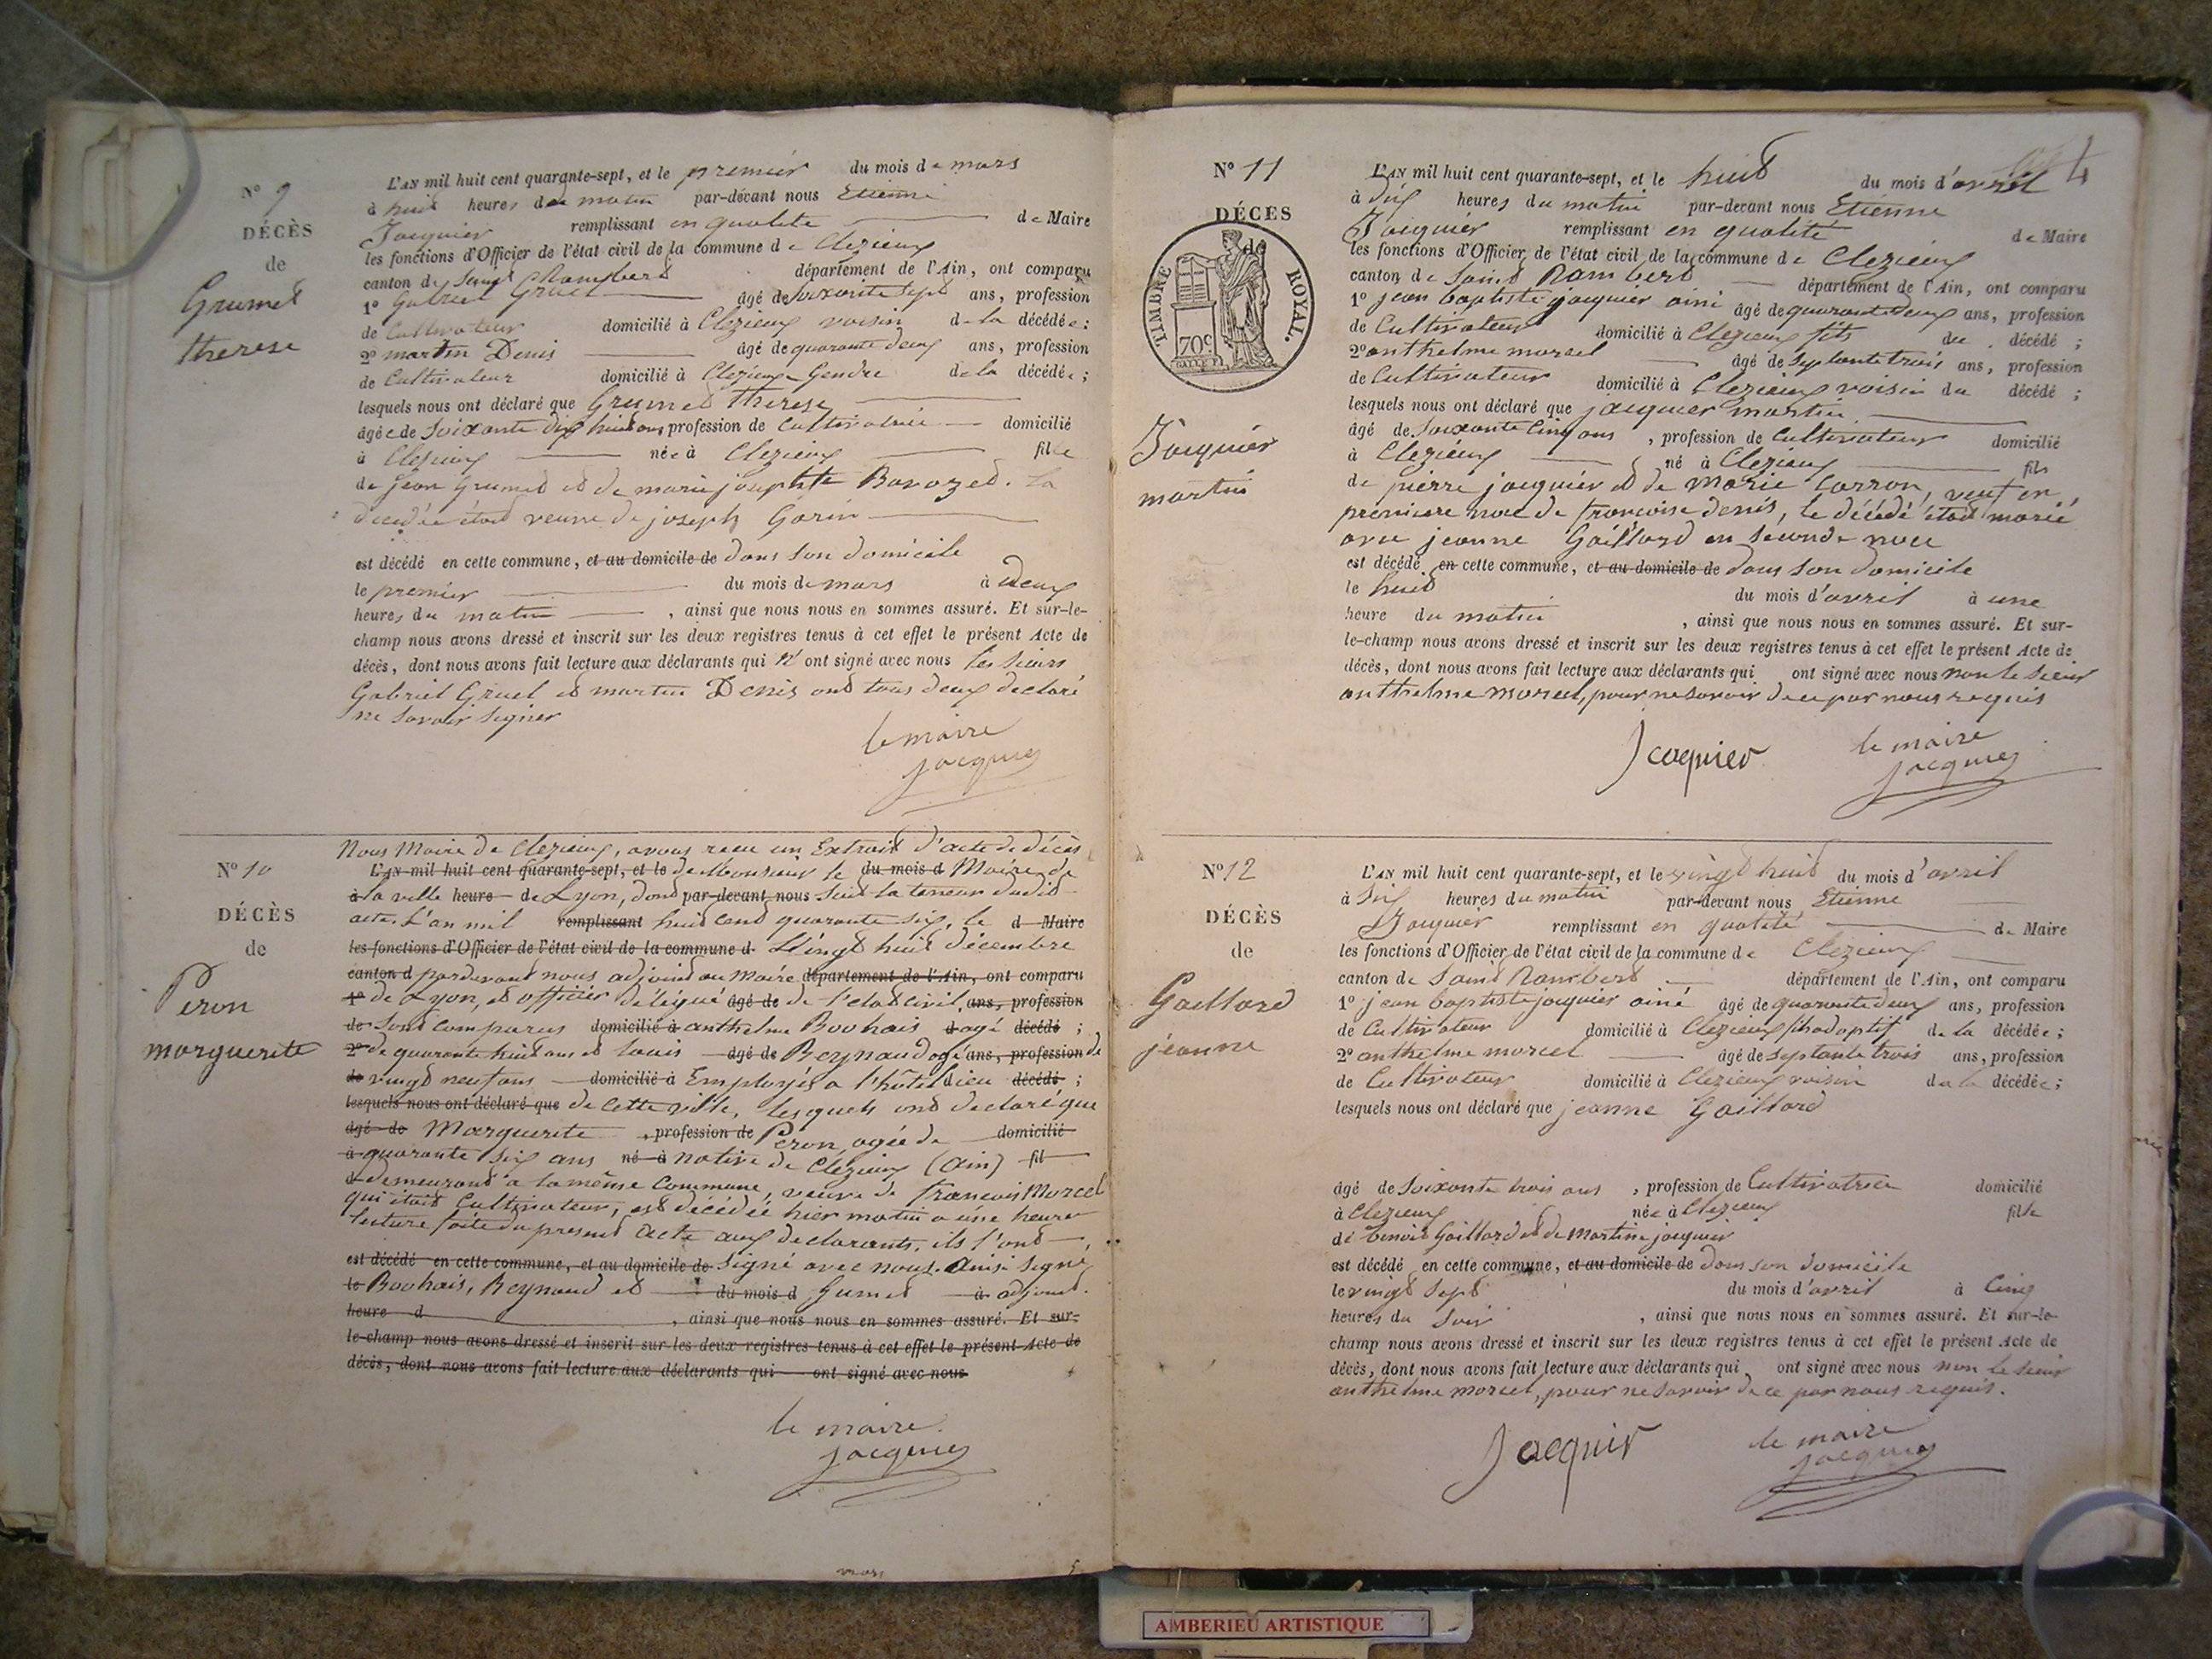 N° 9
DÉCÈS
de
Grumet
therese
L'AN mil huit cent quarante-sept, et le premier du mois de mars
à huit heures du matin par-devant nous Etienne
Jacquier remplissant en qualité de Maire
les fonctions d'Officier de l'état civil de la commune de Clezieux
canton de Saint Rambert département de l'Ain, ont comparu
1° Gabriel Gruel âgé de soixante sept ans, profession
de Cultivateur domicilié à Clezieux voisin de la décédée ;
2° martin Denis âgé de quarante deux ans, profession
de Cultivateur domicilié à Clezieux Gendre de la décédée ;
lesquels nous ont déclaré que Grumet therese
âgée de Soixante dix huit ans profession de Cultivatrice domicilié
à Clezieux née à Clezieux fille
de jean Grumet et de marie josephte Bavozet. La
décédée était veuve de joseph Garin
est décédé en cette commune, et au domicile de dans son domicile
le premier du mois de mars à deux
heures du matin , ainsi que nous nous en sommes assuré. Et sur-le-
champ nous avons dressé et inscrit sur les deux registres tenus à cet effet le présent Acte de
décès, dont nous avons fait lecture aux déclarants qui n'ont signé avec nous les sieurs
Gabriel Gruel et martin Denis ont tous deux declaré
ne savoir signer
le maire
jacquier
N° 10
DÉCÈS
de
Peron
marguerite
Nous Maire de Clezieux, avons recu un Extrait d'acte de décès
L'AN mil huit cent quarante-sept, et le de Monsieur le du mois d Maire de
à la ville heure de Lyon, dont par-devant nous suit la teneur dudit
acte. L'an mil remplissant huit cent quarante six, le d Maire
les fonctions d'Officier de l'état civil de la commune d Vingt huit décembre
canton d pardevant nous adjoint au Maire département de l'Ain, ont comparu
1° de Lyon, et officier délégué âgé de de l'etat civil, ans, profession
de sont comparus domicilié à anthelme Bouhais d agé décédé ;
2° de quarante huit ans et louis âgé de Reynaud agé ans, profession de
de vingt neuf ans domicilié à Employés a l'hôtel dieu décédé ;
lesquels nous ont déclaré que de cette ville, lesquels ont declaré que
âgé de Marguerite , profession de Peron, agée de domicilié
à quarante six ans né à native de Clezieux (ain) fil
d demeurant a la même Commune, veuve de francois Morcel
qui était Cultivateur, est décédée hier matin a une heure
lecture faite du present acte aux declarants, ils l'ont
est décédé en cette commune, et au domicile de signé avec nous. ainsi signé
le Bouhais, Reynaud et du mois d Gumet à adjoint.
heure d , ainsi que nous nous en sommes assuré. Et sur-
le-champ nous avons dressé et inscrit sur les deux registres tenus à cet effet le présent Acte de
décès, dont nous avons fait lecture aux déclarants qui ont signé avec nous
le maire
jacquier
mars
N° 11
DÉCÈS
de
TIMBRE ROYAL.
70c
Jacquier
martin
4
L'AN mil huit cent quarante-sept, et le huit du mois d'avril
à dix heures du matin par-devant nous Etienne
Jacquier remplissant en qualité de Maire
les fonctions d'Officier de l'état civil de la commune de Clezieux
canton de Saint Rambert département de l'Ain, ont comparu
1° jean baptiste jacquier ainé âgé de quarante deux ans, profession
de Cultivateur domicilié à Clezieux fils du décédé ;
2° anthelme morcel âgé de septante trois ans, profession
de Cultivateur domicilié à Clezieux voisin du décédé ;
lesquels nous ont déclaré que jacquier martin
âgé de soixante Cinq ans , profession de Cultivateur domicilié
à Clezieux né à Clezieux fils
de pierre jacquier et de Marie Carron, veuf en
premiere noce de francoise denis, le décédé était marié
avec jeanne Gaillard en seconde noce
est décédé en cette commune, et au domicile de dans son domicile
le huit du mois d'avril à une
heure du matin , ainsi que nous nous en sommes assuré. Et sur-
le-champ nous avons dressé et inscrit sur les deux registres tenus à cet effet le présent Acte de
décès, dont nous avons fait lecture aux déclarants qui ont signé avec nous non le sieur
anthelme morcel, pour ne savoir de ce par nous requis
Jcaquier
le maire
jacquier
N° 12
DÉCÈS
de
Gaillard
jeanne
L'AN mil huit cent quarante-sept, et le vingt huit du mois d'avril
à Six heures du matin par-devant nous Etienne
Jacquier remplissant en qualité de Maire
les fonctions d'Officier de l'état civil de la commune de Clezieux
canton de Saint Rambert département de l'Ain, ont comparu
1° jean baptiste jacquier ainé âgé de quarante deux ans, profession
de Cultivateur domicilié à Clezieux fils adoptif de la décédée ;
2° anthelme morcel âgé de septante trois ans, profession
de Cultivateur domicilié à Clezieux voisin de la décédée ;
lesquels nous ont déclaré que jeanne Gaillard
âgé de soixante trois ans , profession de Cultivatrice domicilié
à Clezieux née à Clezieux fille
de benoit Gaillard et de Martine jacquier
est décédé en cette commune, et au domicile de dans son domicile
le vingt sept du mois d'avril à Cinq
heures du soir , ainsi que nous nous en sommes assuré. Et sur-le-
champ nous avons dressé et inscrit sur les deux registres tenus à cet effet le présent Acte de
décès, dont nous avons fait lecture aux déclarants qui ont signé avec nous non le sieur
anthelme morcel, pour ne savoir de ce par nous requis.
Jacquir
le maire
jacquier
AMBERIEU ARTISTIQUE